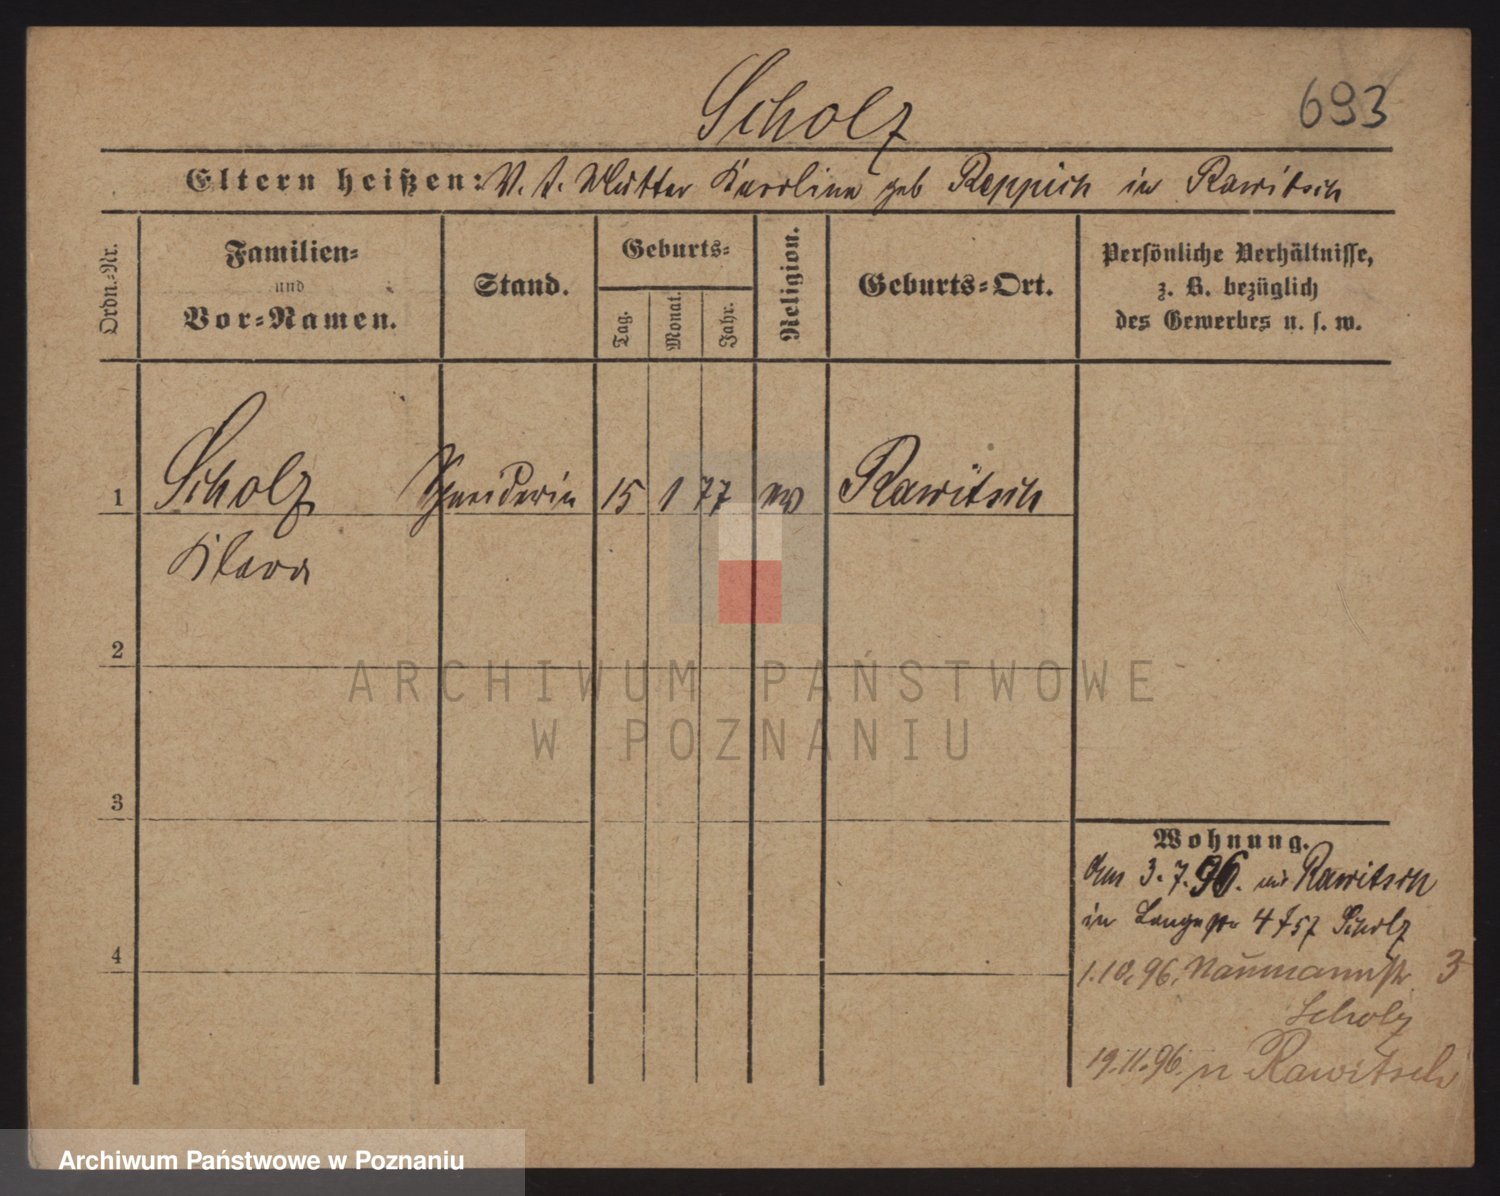 Scholz
693
Eltern heißen: V. t. Mutter Karoline geb Reppich in Rawitsch
Ordn.-Nr.
Familien-
und
Vor-Namen.
Stand.
Geburts-
Tag.
Monat.
Jahr.
Religion.
Geburts-Ort.
Persönliche Verhältnisse,
z. B. bezüglich
des Gewerbes u. s. w.
1 Scholz Schneiderin 15 1 77 ev Rawitsch
Klara
2
3
4
Wohnung.
Am 3.7.96. aus Rawitsch
in Langestr 4 Scholz
1.10.96. Naumannstr. 3
Scholz
19.11.96. n Rawitsch
ARCHIWUM PAŃSTWOWE
W POZNANIU
Archiwum Państwowe w Poznaniu